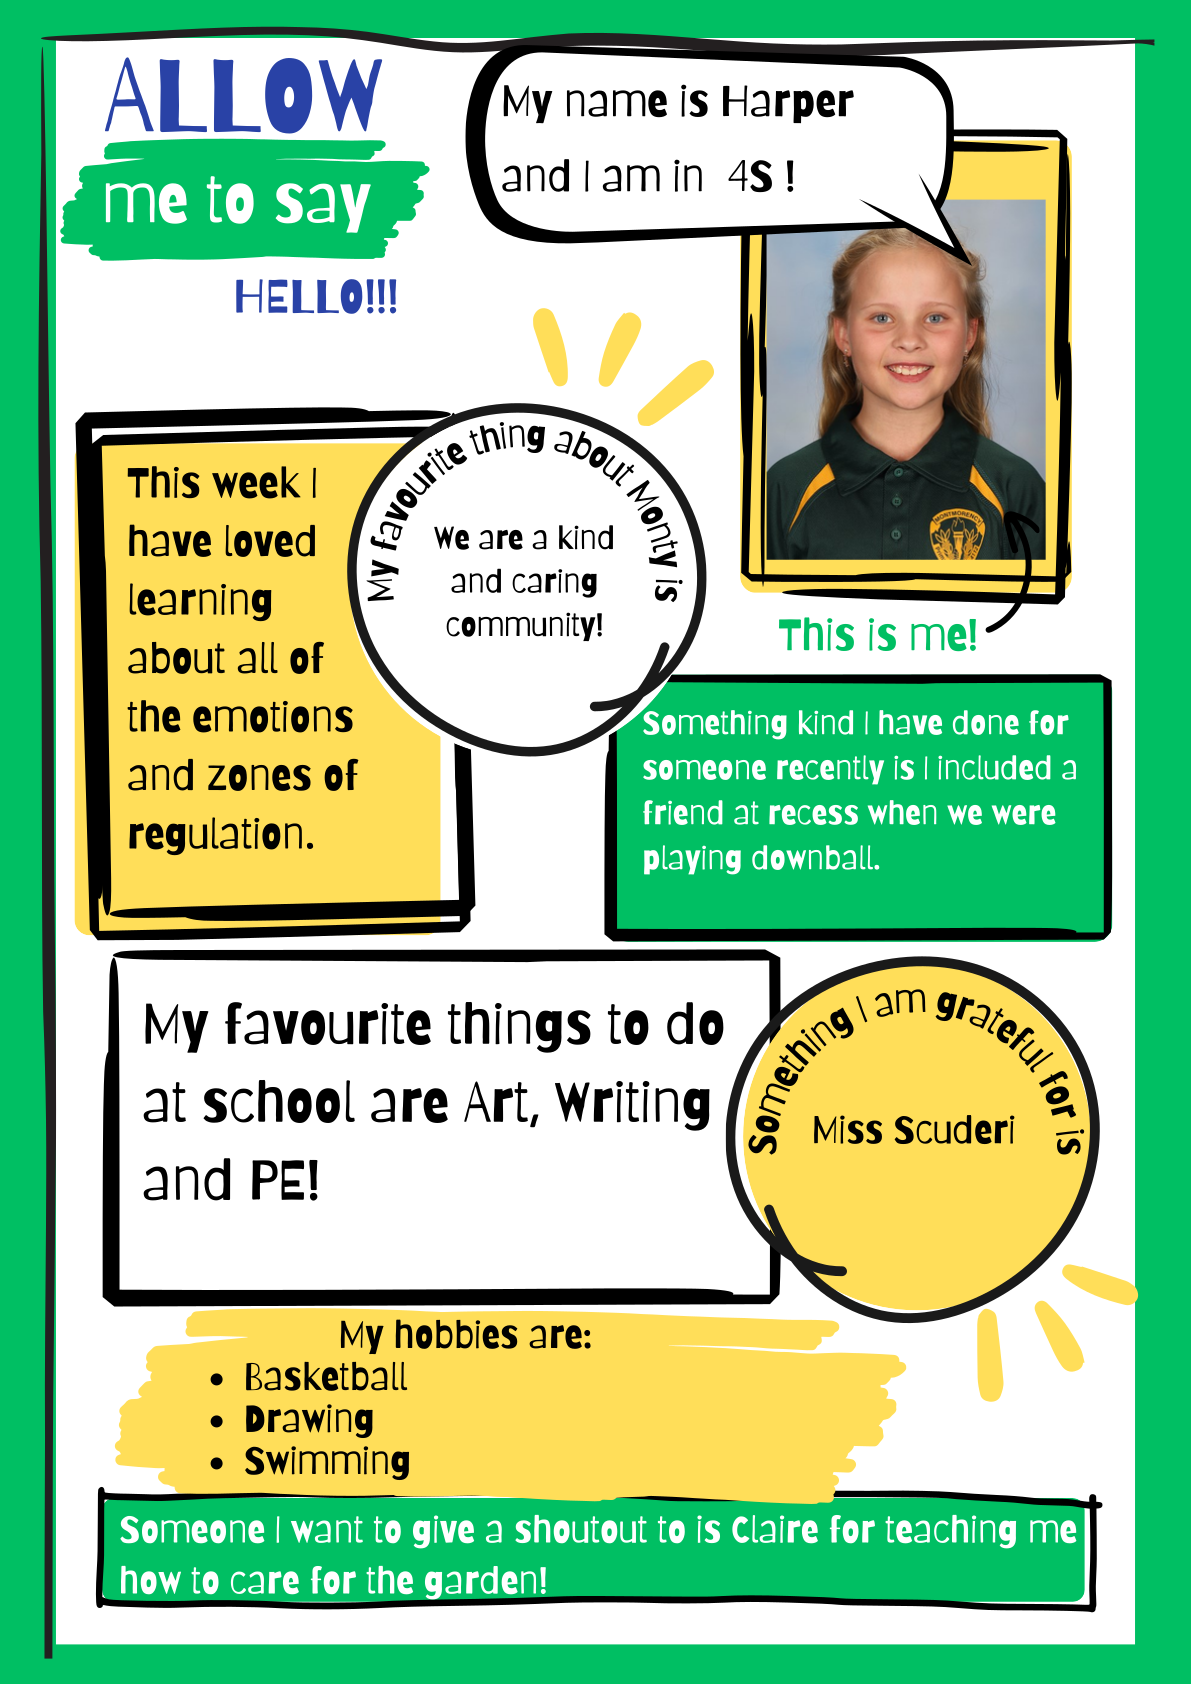 ALLOW
me to say
HELLO!!!
My name is Harper
and I am in 4S !
MONTMORENCY
This is me!
This week I
have loved
learning
about all of
the emotions
and zones of
regulation.
My favourite thing about Monty is
We are a kind
and caring
community!
Something kind I have done for
someone recently is I included a
friend at recess when we were
playing downball.
My favourite things to do
at school are Art, Writing
and PE!
Something I am grateful for is
Miss Scuderi
My hobbies are:
• Basketball
• Drawing
• Swimming
Someone I want to give a shoutout to is Claire for teaching me
how to care for the garden!